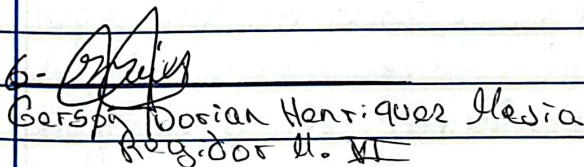 6-
Gerson Dorian Henriquez Mesia
Regidor M. VI